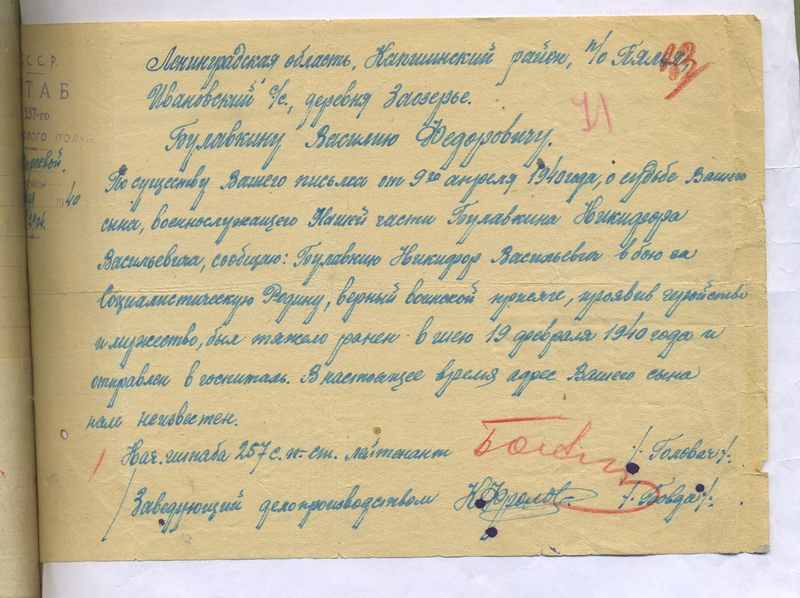 С.С.С.Р.
ШТАБ
257-го
40
Ленинградская область, Капшинский район, п/о Пялья,
13
Ивановский с/с., деревня Заозерье.
Булавкину Василию Федоровичу.
По существу Вашего письма от 9го апреля 1940 года, о судьбе Вашего
сына, военнослужащего Нашей части Булавкина Никифора
Васильевича, сообщаю: Булавкин Никифор Васильевич в бою за
Социалистическую Родину, верный воинской присяге, проявив геройство
и мужество, был тяжело ранен в шею 19 февраля 1940 года и
отправлен в госпиталь. В настоящее время адрес Вашего сына
нам неизвестен.
Нач. штаба 257 с.п.-ст. лейтенант /. Головач /.
/ Заведующий делопроизводством